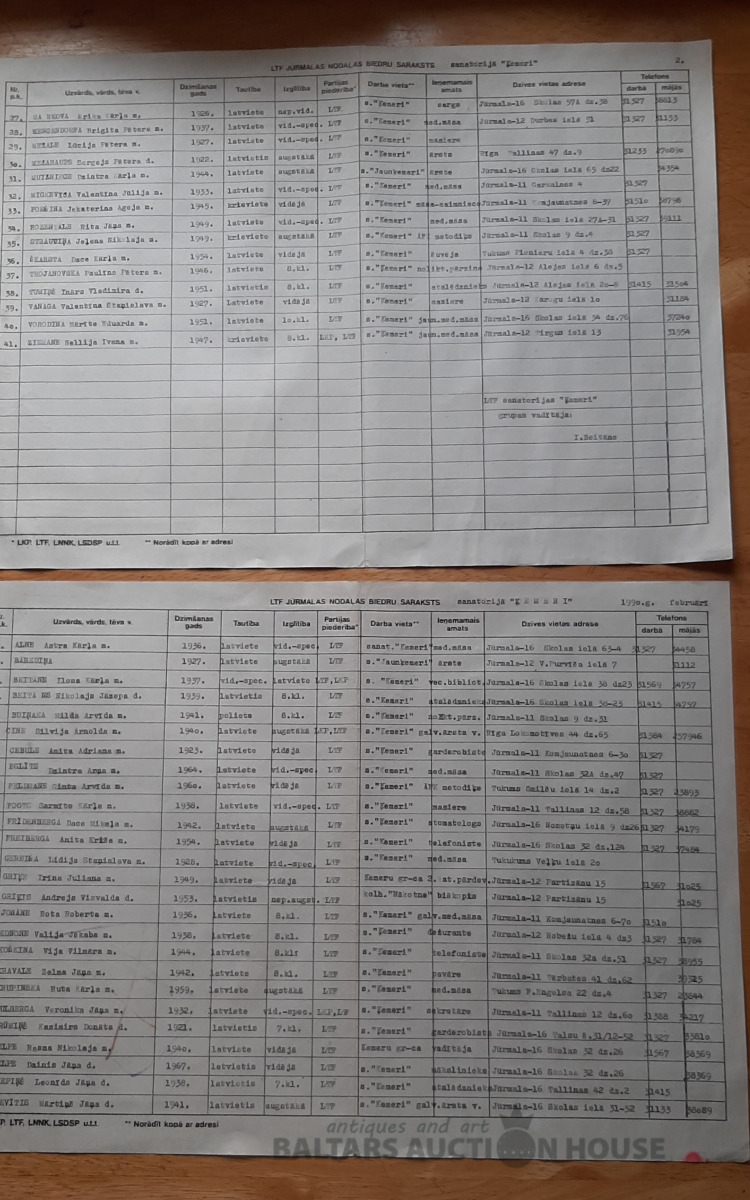 LTF JURMALAS NODAĻAS BIEDRU SARAKSTS sanatorijā "Ķemeri" 2.
Nr. p.k. Uzvārds, vārds, tēva v. Dzimšanas gads Tautība Izglītība Partijas piederība* Darba vieta** Ieņemamais amats Dzīves vietas adrese Telefons darbā mājās
27. Erika Kārļa m. 1926. latviete nep.vid. LTF s."Ķemeri" sargs Jūrmala-16 Skolas 57A dz.38 51327 38813
28. Brigita Pētera m. 1937. latviete vid.-spec. LTF s."Ķemeri" med.māsa Jūrmala-12 Durbes ielā 31 51327 51133
29. Lūcija Pētera m. 1927. latviete vid.-spec. LTF s."Ķemeri" masiere
30. Sergejs Pētera d. 1922. latvietis augstākā LTF s."Ķemeri" ārsts Rīga Tallinas 47 dz.9 51233
31. Dzintra Kārļa m. 1944. latviete augstākā LTF s."Jaunķemeri" ārste Jūrmala-16 Skolas ielā 65 dz22 54354
32. Valentīna Jūlija m. 1933. latviete vid.-spec. LTF s."Ķemeri" med.māsa Jūrmala-11 4 51327
33. Jekaterina m. 1945. krieviete vidējā LTF s."Ķemeri" Jūrmala-11 Komjaunatnes 6-37 51510 50798
34. ROZENTĀLE Rita Jāņa m. 1949. latviete vid.-spec. LTF s."Ķemeri" med.māsa Jūrmala-11 Skolas ielā 27a-31 51327 59111
35. STRAUTIŅA Jeļena Nikolaja m. 1949. krieviete augstākā LTF s."Ķemeri" metodiķe Jūrmala-11 Skolas 9 dz.4 51327
36. ŠKARSTA Dace Kārļa m. 1954. latviete vidējā LTF s."Ķemeri" šuvēja Tukums Pionieru ielā 4 dz.58 51327
37. TROJANOVSKA Paulīna Pētera m. 1946. latviete 8.kl. LTF s."Ķemeri" nolikt.pārzine Jūrmala-12 Alejas ielā 6 dz.5
38. Imārs Vladimira d. 1951. latvietis 8.kl. LTF s."Ķemeri" atslēdznieks Jūrmala-12 Alejas ielā 2o-8 51415 51504
39. VANAGA Valentīna Staņislava m. 1927. latviete vidējā LTF s."Ķemeri" masiere Jūrmala-12 ielā 1o 51184
4o. VORODINA Mārīte Eduarda m. 1951. latviete 1o.kl. LTF s."Ķemeri" jaun.med.māsa Jūrmala-16 Skolas ielā 54 dz.76 37240
41. ZIEMANE Nellija Ivana m. 1947. krieviete 8.kl. LKP, LTF s."Ķemeri" jaun.med.māsa Jūrmala-12 Tirgus ielā 13 51954
LTF sanatorijas "Ķemeri"
grupas vadītāja:
I.Beitāne
* LKP, LTF, LNNK, LSDSP u.t.t. ** Norādīt kopā ar adresi
LTF JURMALAS NODAĻAS BIEDRU SARAKSTS sanatorijā "Ķ E M E R I" 199o.g. februārī
Uzvārds, vārds, tēva v. Dzimšanas gads Tautība Izglītība Partijas piederība* Darba vieta** Ieņemamais amats Dzīves vietas adrese Telefons darbā mājās
ALNE Astra Kārļa m. 1936. latviete vid.-spec. LTF sanat."Ķemeri" med.māsa Jūrmala-16 Skolas ielā 63-4 51327 54458
BĀRZDIŅA 1927. latviete augstākā LTF s."Jaunķemeri" ārste Jūrmala-12 V.Purvīša ielā 7 51112
BEITĀNE Ilona Kārļa m. 1937. vid.-spec. latviete LTF,LKP s."Ķemeri" vec.bibliot. Jūrmala-16 Skolas ielā 38 dz23 51569 54757
Nikolajs Jāzepa d. 1939. latvietis 8.kl. LTF s."Ķemeri" atslēdznieks Jūrmala-16 Skolas ielā 38-23 51415 54757
Milda Arvīda m. 1941. poliete 8.kl. LTF s."Ķemeri" Jūrmala-11 Skolas 9 dz.31
Silvija Arnolda m. 194o. latviete augstākā LKP,LTF s."Ķemeri" galv.ārsta v. Rīga Lokomotīves 44 dz.65 51384 257946
CEBULE Anita Adriana m. 1923. latviete vidējā LTF s."Ķemeri" garderobiste Jūrmala-11 Komjaunatnes 6-3o 51327
EGLĪTE Dzintra m. 1964. latviete vid.-spec. LTF s."Ķemeri" med.māsa Jūrmala-11 Skolas 32A dz.47 51327
Ginta Arvīda m. 196o. latviete vidējā LTF s."Ķemeri" metodiķe Tukums Smilšu ielā 14 dz.2 51327 23893
Sarmīte Kārļa m. 1938. latviete vid.-spec. LTF s."Ķemeri" masiere Jūrmala-11 Tallinas 12 dz.58 51327 38662
FRĪDENBERGA Dace Miķeļa m. 1942. latviete augstākā LTF s."Ķemeri" stomatologs Jūrmala-16 ielā 9 dz26 51327 54179
FREIBERGA Anita Kriša m. 1954. latviete vidējā LTF s."Ķemeri" telefoniste Jūrmala-16 Skolas 32 dz.124 51327 37484
Lidija Staņislava m. 1928. latviete vid.-spec. LTF s."Ķemeri" med.māsa Tukukums Veļķu ielā 2o
GRIĶTE Irina Juliana m. 1949. latviete vidējā LTF Ķemeru gr-ca 2. Jūrmala-12 Partizānu 15 51567 51o25
GRIĶTS Andrejs Visvalda d. 1953. latvietis nep.augst. LTF kolh."Nākotne" biškopis Jūrmala-12 Partizānu 15 51o25
Rota Roberta m. 1936. latviete 8.kl. LTF s."Ķemeri" galv.med.māsa Jūrmala-11 Komjaunatnes 6-7o 5151o
Valija Jēkaba m. 1938. latviete 8.kl. LTF s."Ķemeri" dežurante Jūrmala-12 Robežu ielā 4 dz3 51327 51784
Vija Vilmāra m. 1944. latviete 8.kl. LTF s."Ķemeri" telefoniste Jūrmala-11 Skolas 32a dz.51 51327 38955
Selma Jāņa m. 1942. latviete 8.kl. LTF s."Ķemeri" pavāre Jūrmala-11 Tērbatas 41 dz.62 39525
Ruta Kārļa m. 1959. latviete augstākā LTF s."Ķemeri" med.māsa Tukums F.Engelsa 22 dz.4 51327 23844
Veronika Jāņa m. 1932. latviete vid.-spec. LKP,LTF s."Ķemeri" sekretāre Jūrmala-11 Tallinas 12 dz.6o 51388 54217
Kazimirs Donāta d. 1921. latvietis 7.kl. LTF s."Ķemeri" garderobists Jūrmala-16 Talsu 8.31/12-52 51327 5381o
Hanna Nikolaja m. 194o. latviete vidējā LTF Ķemeru gr-ca vadītāja Jūrmala-16 Skolas 32 dz.26 51567 38369
Dainis Jāņa d. 1967. latvietis vidējā LTF mākslinieks Jūrmala-16 Skolas 32 dz.26 38369
Leonīds Jāņa d. 1938. latvietis 7.kl. LTF s."Ķemeri" atslēdznieks Jūrmala-16 Tallinas 42 dz.2 51415
Mārtiņš Jāņa d. 1941. latvietis augstākā LTF s."Ķemeri" galv.ārsta v. Jūrmala-16 Skolas ielā 31-52 51133 38o89
LTF, LNNK, LSDSP u.t.t. ** Norādīt kopā ar adresi
antiques and art
BALTARS AUCTION HOUSE